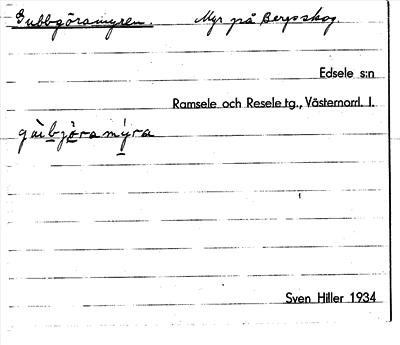 Gubbgöramyren. Myr på Bergsskog.
Edsele s:n
Ramsele och Resele tg., Västernorrl. l.
gùbjöramýra
Sven Hiller 1934